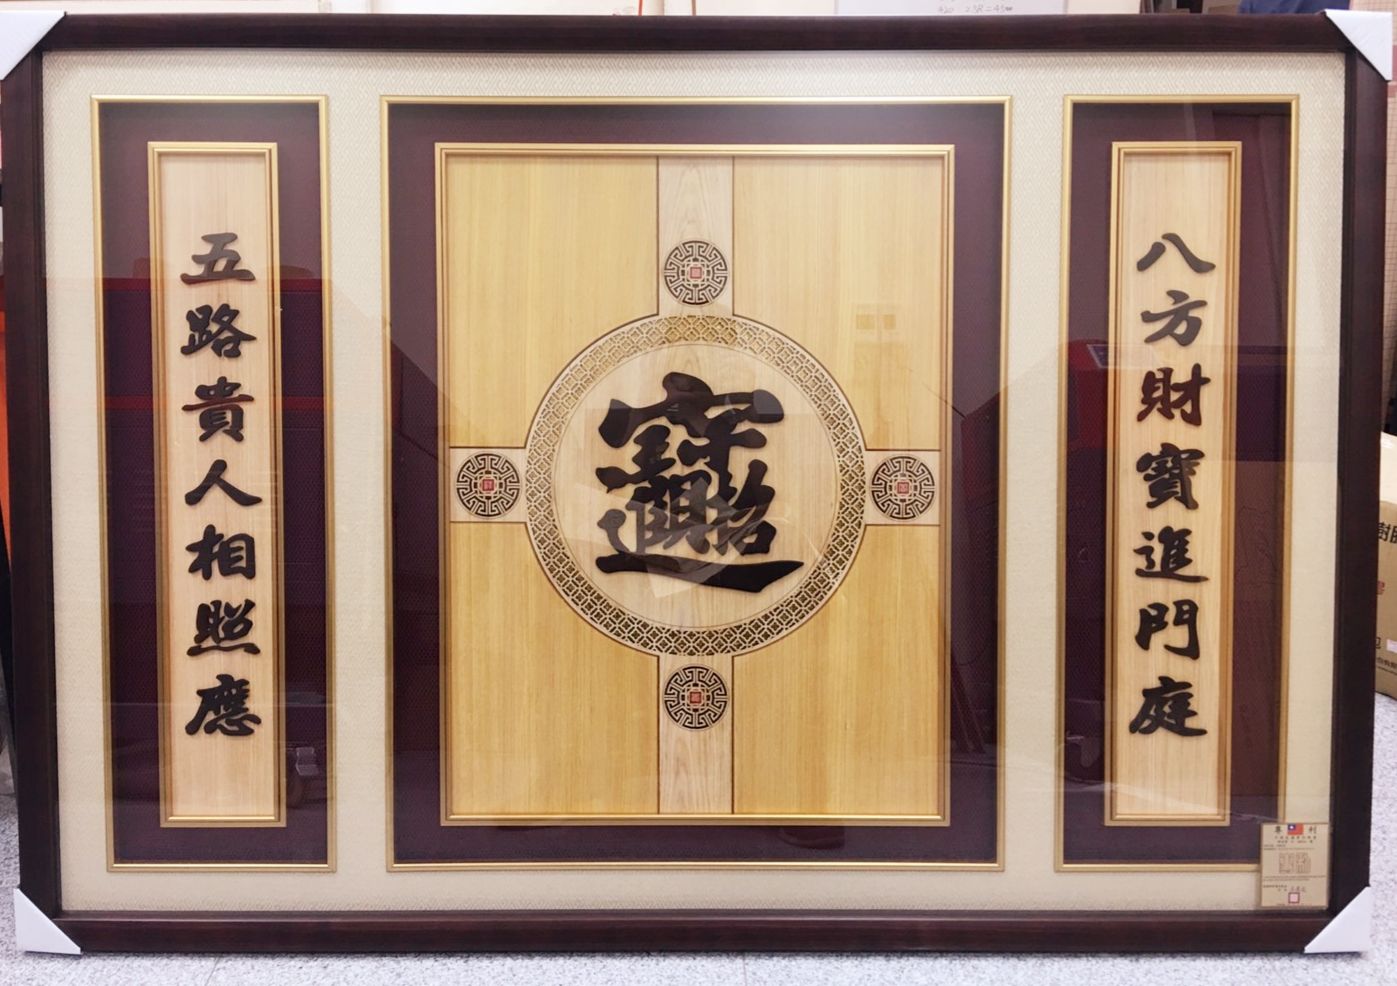 八方財寶進門庭
招財進寶
五路貴人相照應
專利